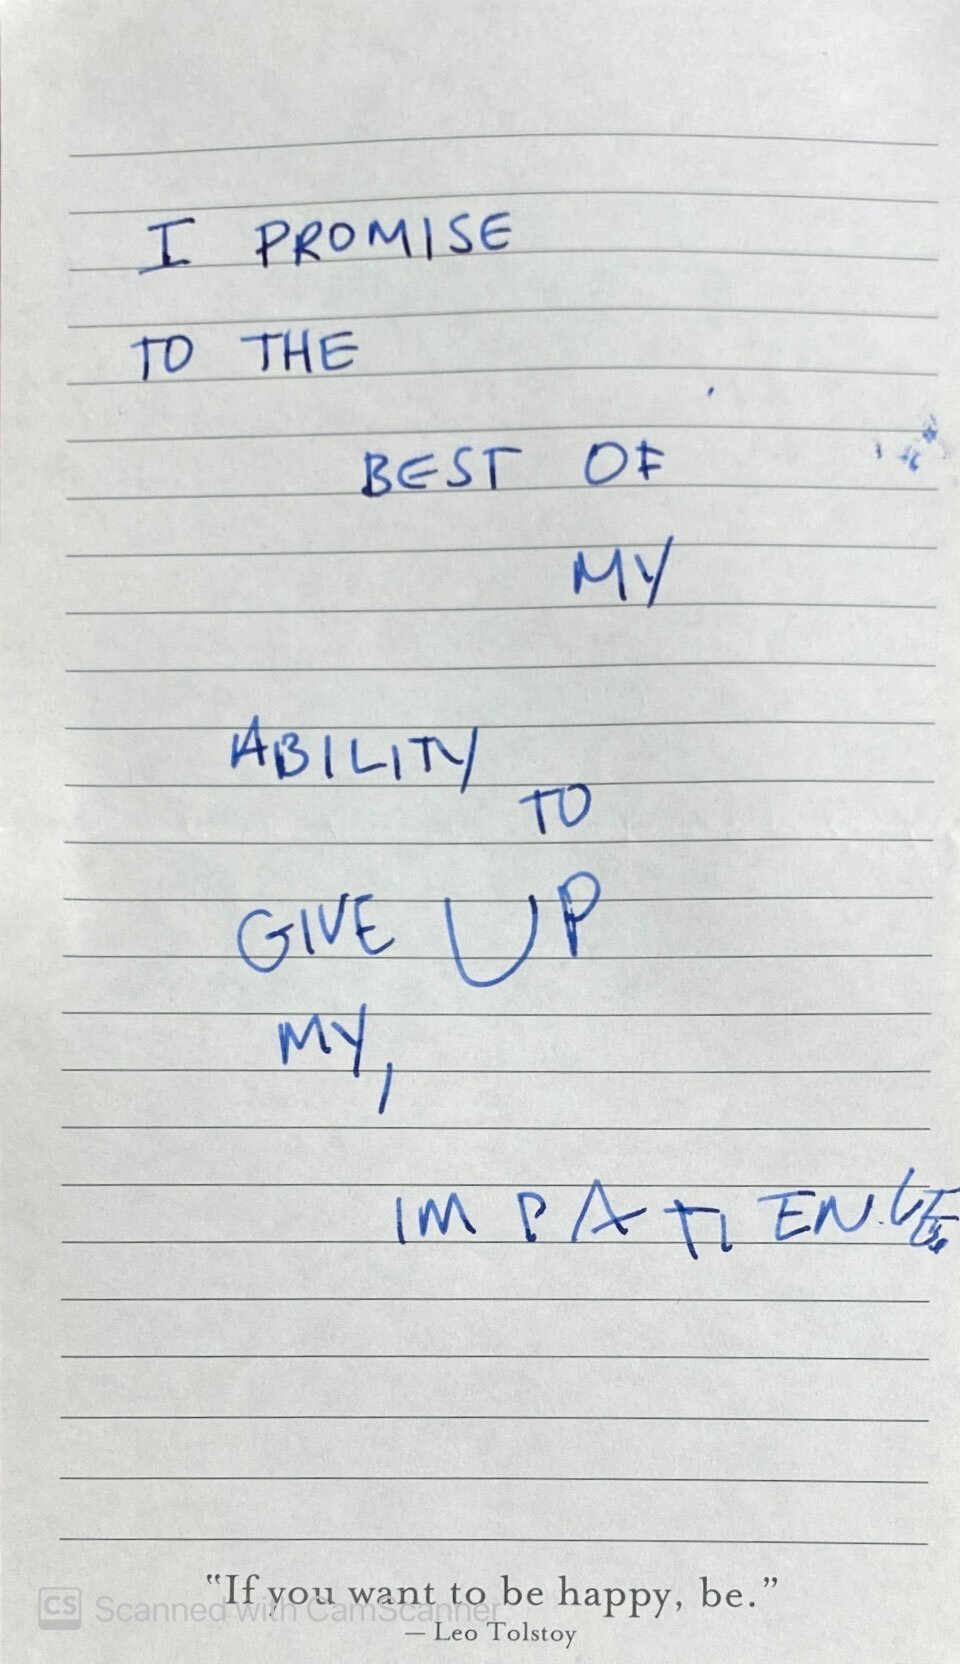 I PROMISE
TO THE
BEST OF
MY
ABILITY
TO
GIVE UP
MY,
IMPATIENCE
“If you want to be happy, be.”
— Leo Tolstoy
CS Scanned with CamScanner